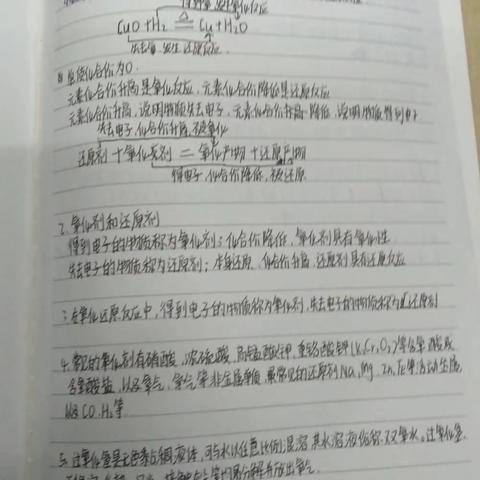 得到氧,发生氧化反应
CuO+H₂ =△= Cu+H₂O
失去氧,发生还原反应
单质化合价为0.
元素化合价升高是氧化反应,元素化合价降低是还原反应
元素化合价升高,说明物质失去电子,元素化合价降低,说明物质得到电子
失去电子,化合价升高,被氧化
还原剂+氧化剂=氧化产物+还原产物
得电子,化合价降低,被还原
2.氧化剂和还原剂
得到电子的物质称为氧化剂;化合价降低,氧化剂具有氧化性
失去电子的物质称为还原剂;本身还原,化合价升高,还原剂具有还原反应
3.在氧化还原反应中,得到电子的物质称为氧化剂,失去电子的物质称为还原剂
4.常见的氧化剂有硝酸,浓硫酸,高锰酸钾,重铬酸钾(K₂Cr₂O₇)等含氧酸或
含氧酸盐,以及氧气,氯气等非金属单质,最常见的还原剂Na,Mg,Zn,Fe等活动金属
以及CO,H₂等
5.过氧化氢是无色黏稠液体,可与水以任意比例混溶其水溶液俗称双氧水。过氧化氢
分解并放出氧气